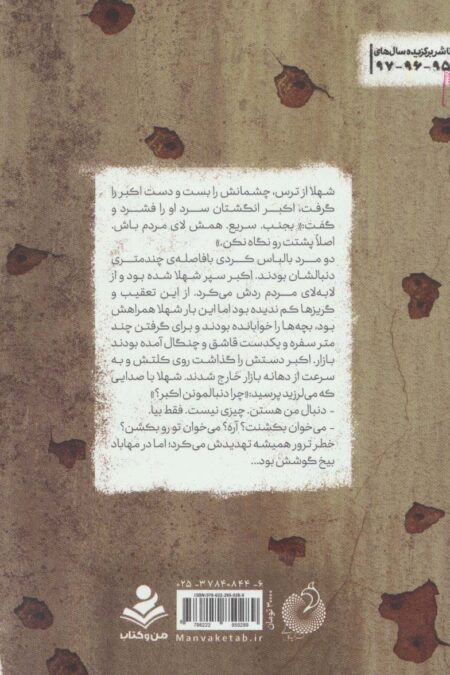 ناشر برگزیده سال‌های
۹۵-۹۶-۹۷
شهلا از ترس، چشمانش را بست و دست اکبر را
گرفت، اکبر انگشتان سرد او را فشرد و
گفت:«بجنب، سریع. همش لای مردم باش.
اصلاً پشتت رو نگاه نکن.»
دو مرد بالباس کردی بافاصله‌ی چندمتری
دنبالشان بودند. اکبر سپر شهلا شده بود و از
لابه‌لای مردم ردش می‌کرد. از این تعقیب و
گریزها کم ندیده بود اما این بار شهلا همراهش
بود، بچه‌ها را خوابانده بودند و برای گرفتن چند
متر سفره و یکدست قاشق و چنگال آمده بودند
بازار. اکبر دستش را گذاشت روی کلتش و به
سرعت از دهانه بازار خارج شدند. شهلا با صدایی
که می‌لرزید پرسید:«چرا دنبالمونن اکبر؟»
- دنبال من هستن. چیزی نیست. فقط بیا.
- می‌خوان بکشنت؟ آره؟ می‌خوان تو رو بکشن؟
خطر ترور همیشه تهدیدش می‌کرد؛ اما در مهاباد
بیخ گوشش بود...
۰۲۵-۳۷۸۴۰۸۴۴-۶
من و کتاب
Manvaketab.ir
۳۰۰۰۰ تومان